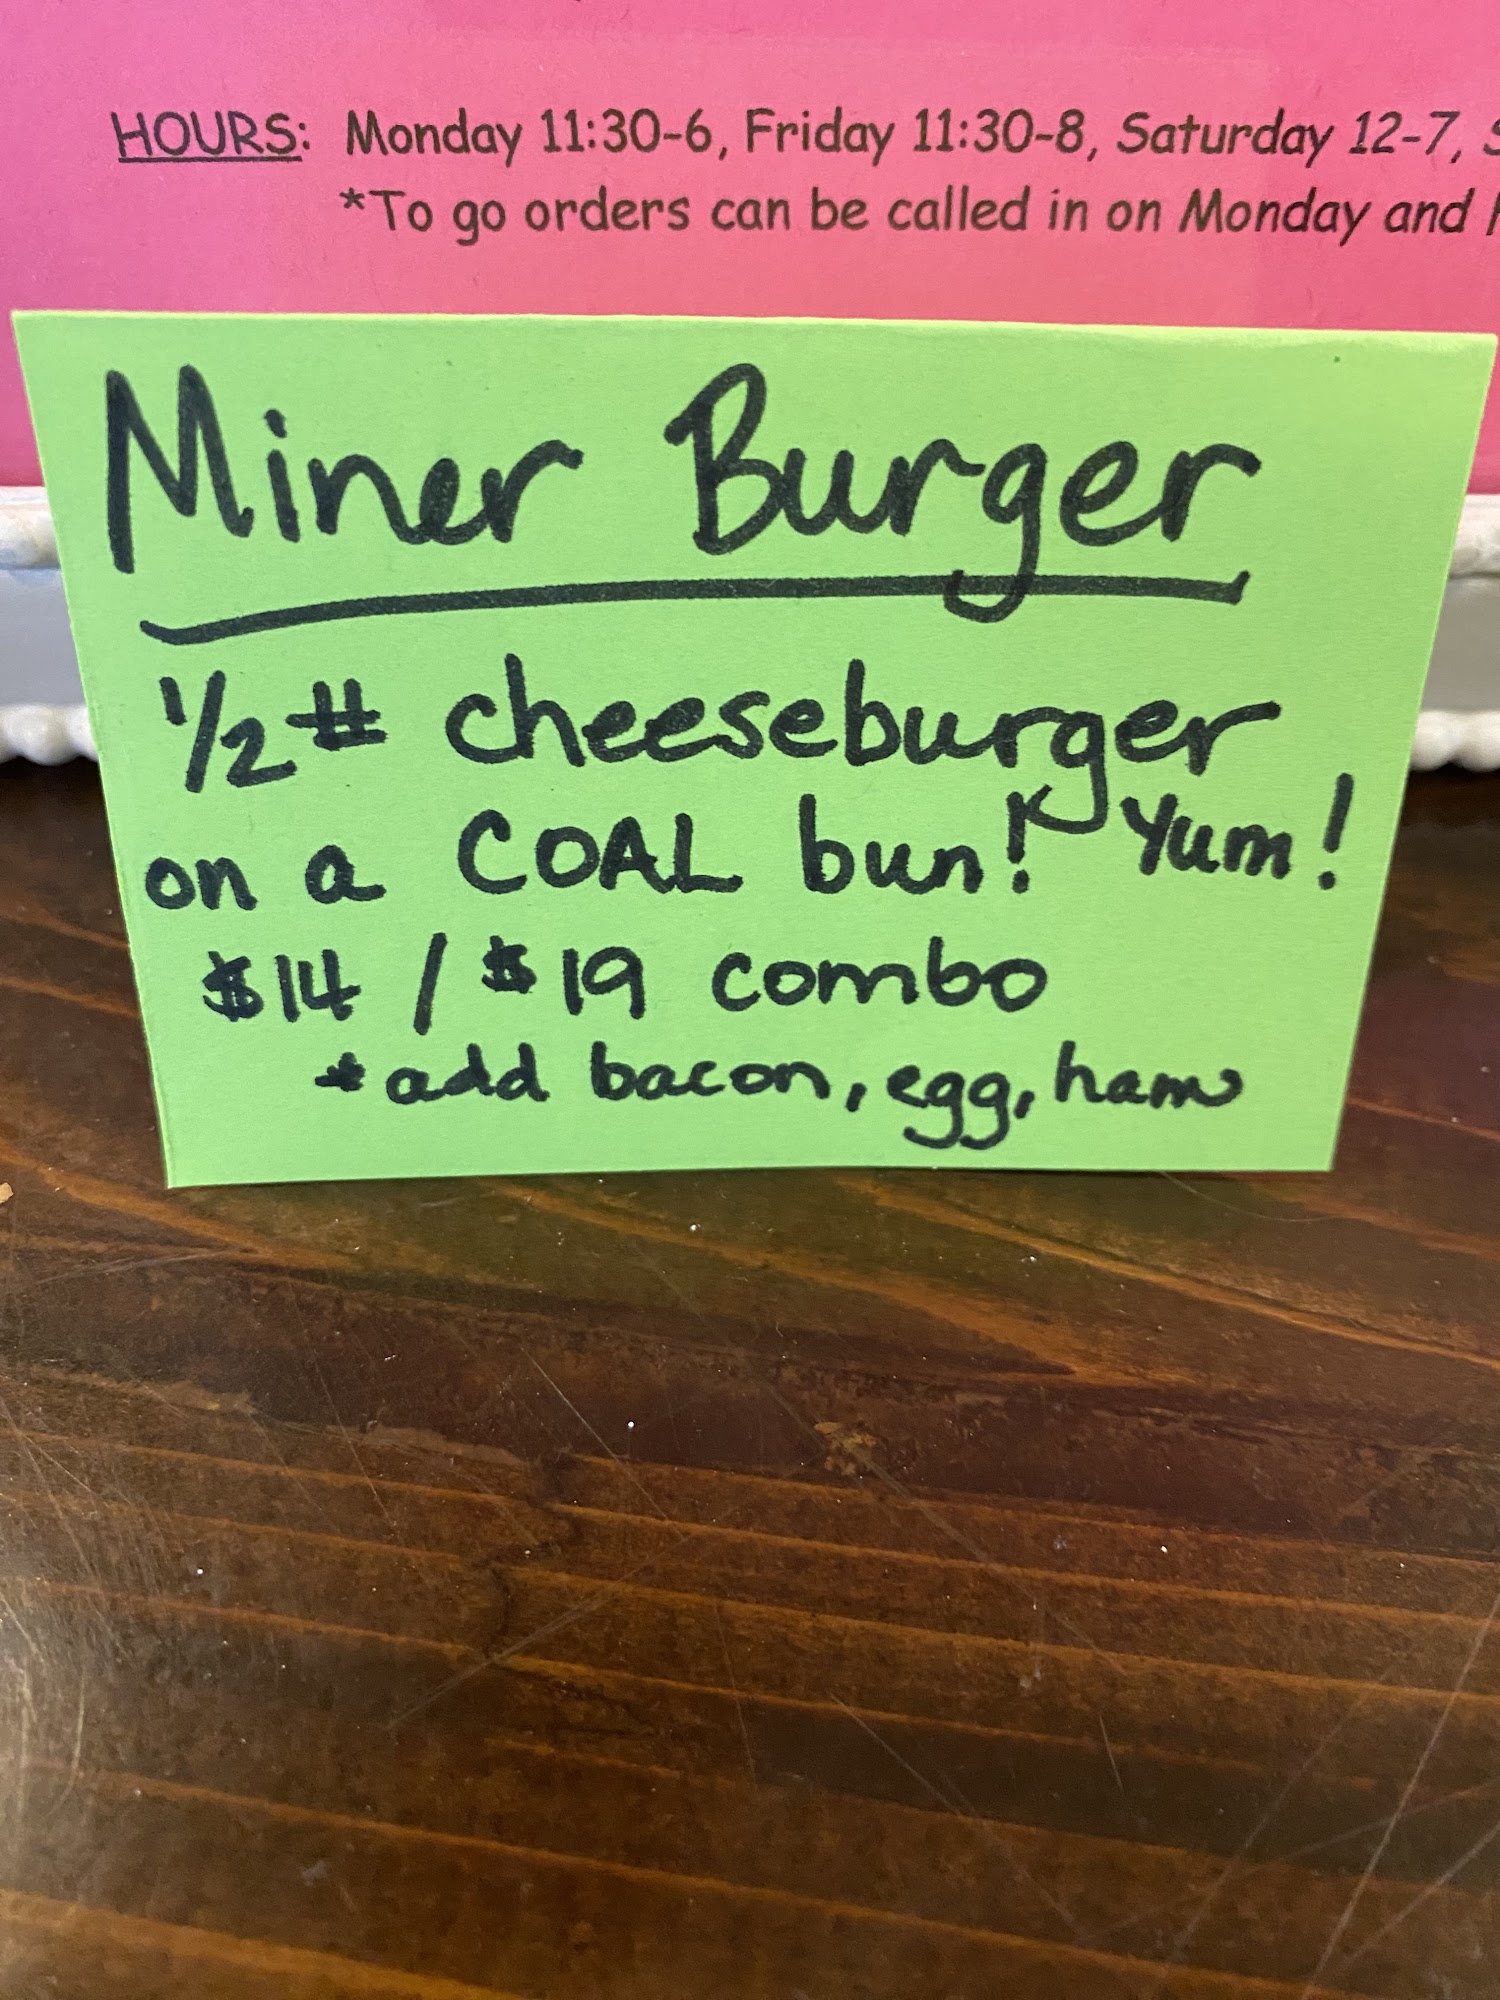 HOURS: Monday 11:30-6, Friday 11:30-8, Saturday 12-7,
*To go orders can be called in on Monday and
Miner Burger
1/2 # cheeseburger
on a COAL bun! Yum!
$14 / $19 combo
* add bacon, egg, ham